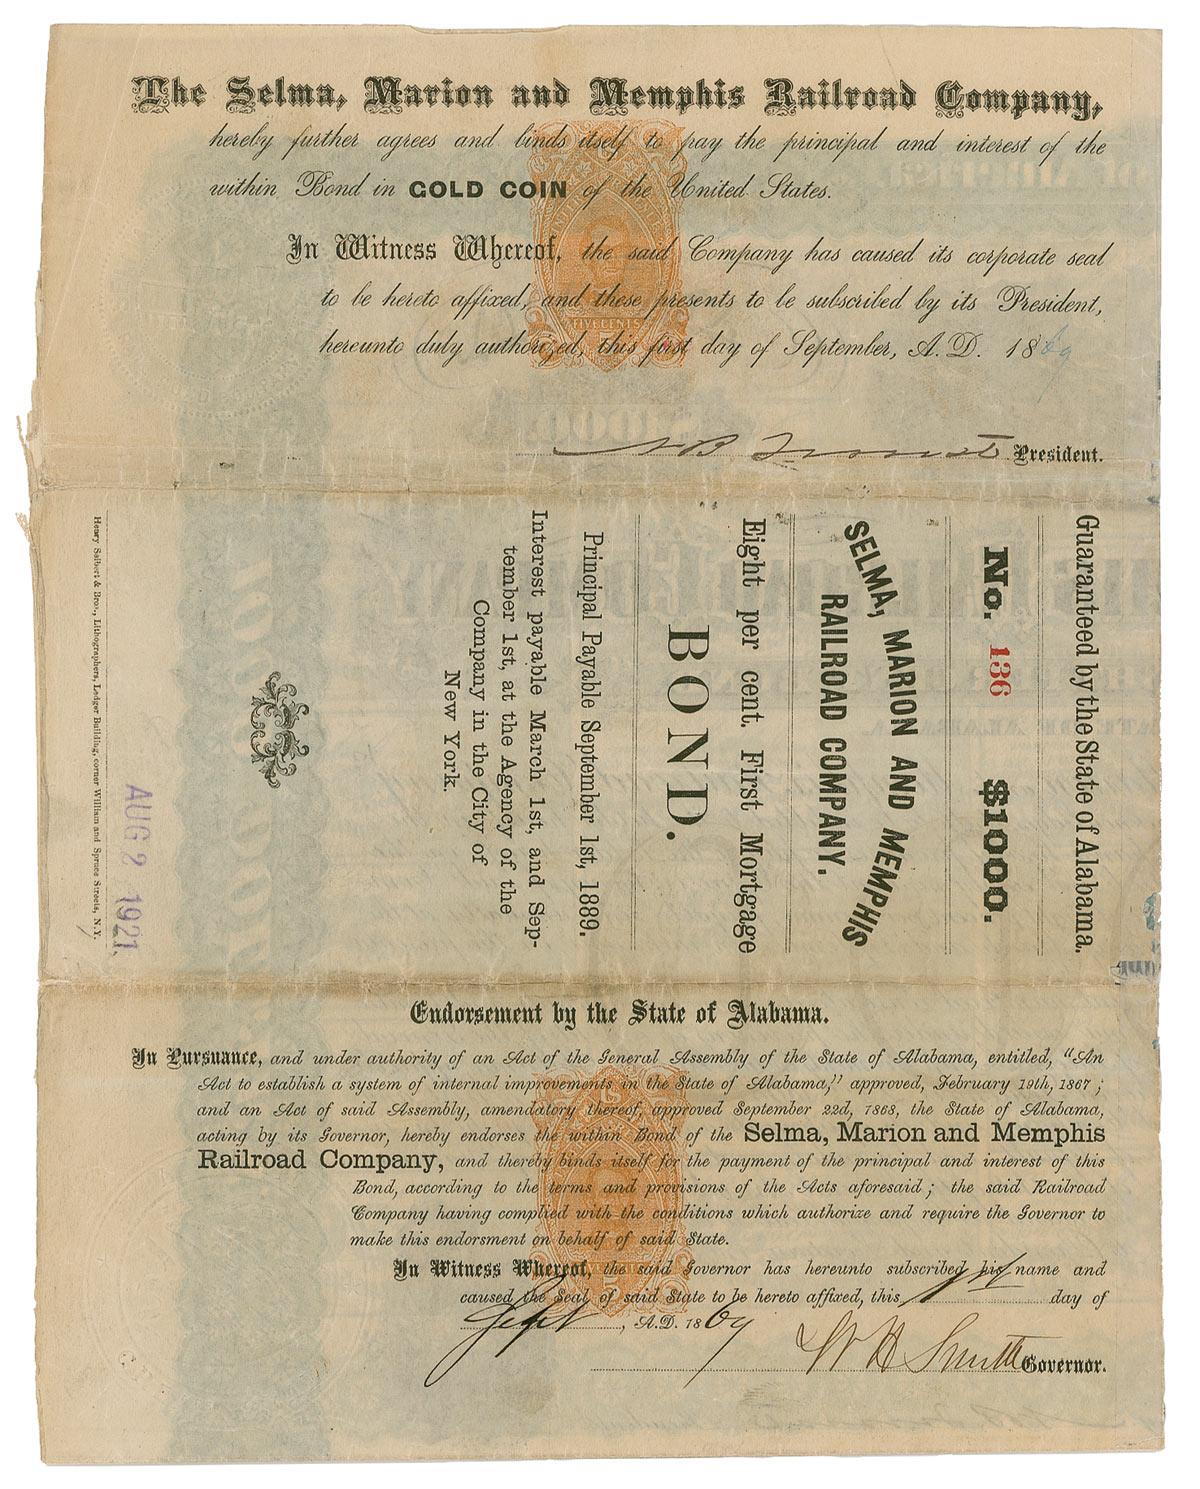 The Selma, Marion and Memphis Railroad Company,
hereby further agrees and binds itself to pay the principal and interest of the
within Bond in GOLD COIN of the United States.
In Witness Whereof, the said Company has caused its corporate seal
to be hereto affixed, and these presents to be subscribed by its President,
hereunto duly authorized, this first day of September, A.D. 1869
FIVE CENTS
N B Forrest President.
Guaranteed by the State of Alabama.
No. 136 $1000.
SELMA, MARION AND MEMPHIS
RAILROAD COMPANY.
Eight per cent. First Mortgage
BOND.
Principal Payable September 1st, 1889.
Interest payable March 1st, and Sep-
tember 1st, at the Agency of the
Company in the City of
New York.
AUG 2 1921
Henry Seibert & Bros., Lithographers, Ledger Building, corner William and Spruce Streets, N.Y.
Endorsement by the State of Alabama.
In Pursuance, and under authority of an Act of the General Assembly of the State of Alabama, entitled, "An
Act to establish a system of internal improvements in the State of Alabama," approved, February 19th, 1867;
and an Act of said Assembly, amendatory thereof, approved September 22d, 1868, the State of Alabama,
acting by its Governor, hereby endorses the within Bond of the Selma, Marion and Memphis
Railroad Company, and thereby binds itself for the payment of the principal and interest of this
Bond, according to the terms and provisions of the Acts aforesaid; the said Railroad
Company having complied with the conditions which authorize and require the Governor to
make this endorsment on behalf of said State.
In Witness Whereof, the said Governor has hereunto subscribed his name and
caused the Seal of said State to be hereto affixed, this 1st day of
Sept, A.D. 1869
W H Smith Governor.